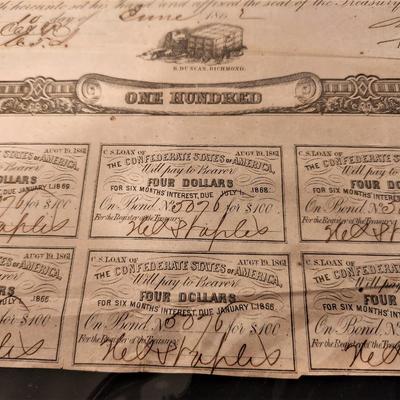 hereunto set his hand and affixed the seal of the Treasury
10 day of June 186
B. DUNCAN, RICHMOND.
ONE HUNDRED
AUGT 19, 1861
STATES OF AMERICA.
to Bearer
DOLLARS
INTEREST, DUE JANUARY 1, 1869
for $100
Register of the Treasury
Staples
C.S. LOAN OF AUGT 19, 1861
THE CONFEDERATE STATES OF AMERICA,
Will pay to Bearer
FOUR DOLLARS
FOR SIX MONTHS' INTEREST, DUE JULY 1, 1868.
On Bond No 5076 for $100
For the Register of the Treasury
Staples
C.S. LOAN OF
THE CONFEDERATE
Will pay
FOUR
FOR SIX MONTHS'
On Bond No
For the Register
AUGT 19, 1861
STATES OF AMERICA.
to Bearer
DOLLARS
DUE JULY 1, 1866
for $100
Treasury
Staples
C.S. LOAN OF AUGT 19, 1861
THE CONFEDERATE STATES OF AMERICA,
Will pay to Bearer
FOUR DOLLARS
FOR SIX MONTHS' INTEREST, DUE JANUARY 1, 1866.
On Bond No 5076 for $100
For the Register of the Treasury
Staples
C.S. LOAN OF
THE CONFEDERATE
Will pay
FOUR
FOR SIX MONTHS'
On Bond No
For the Register